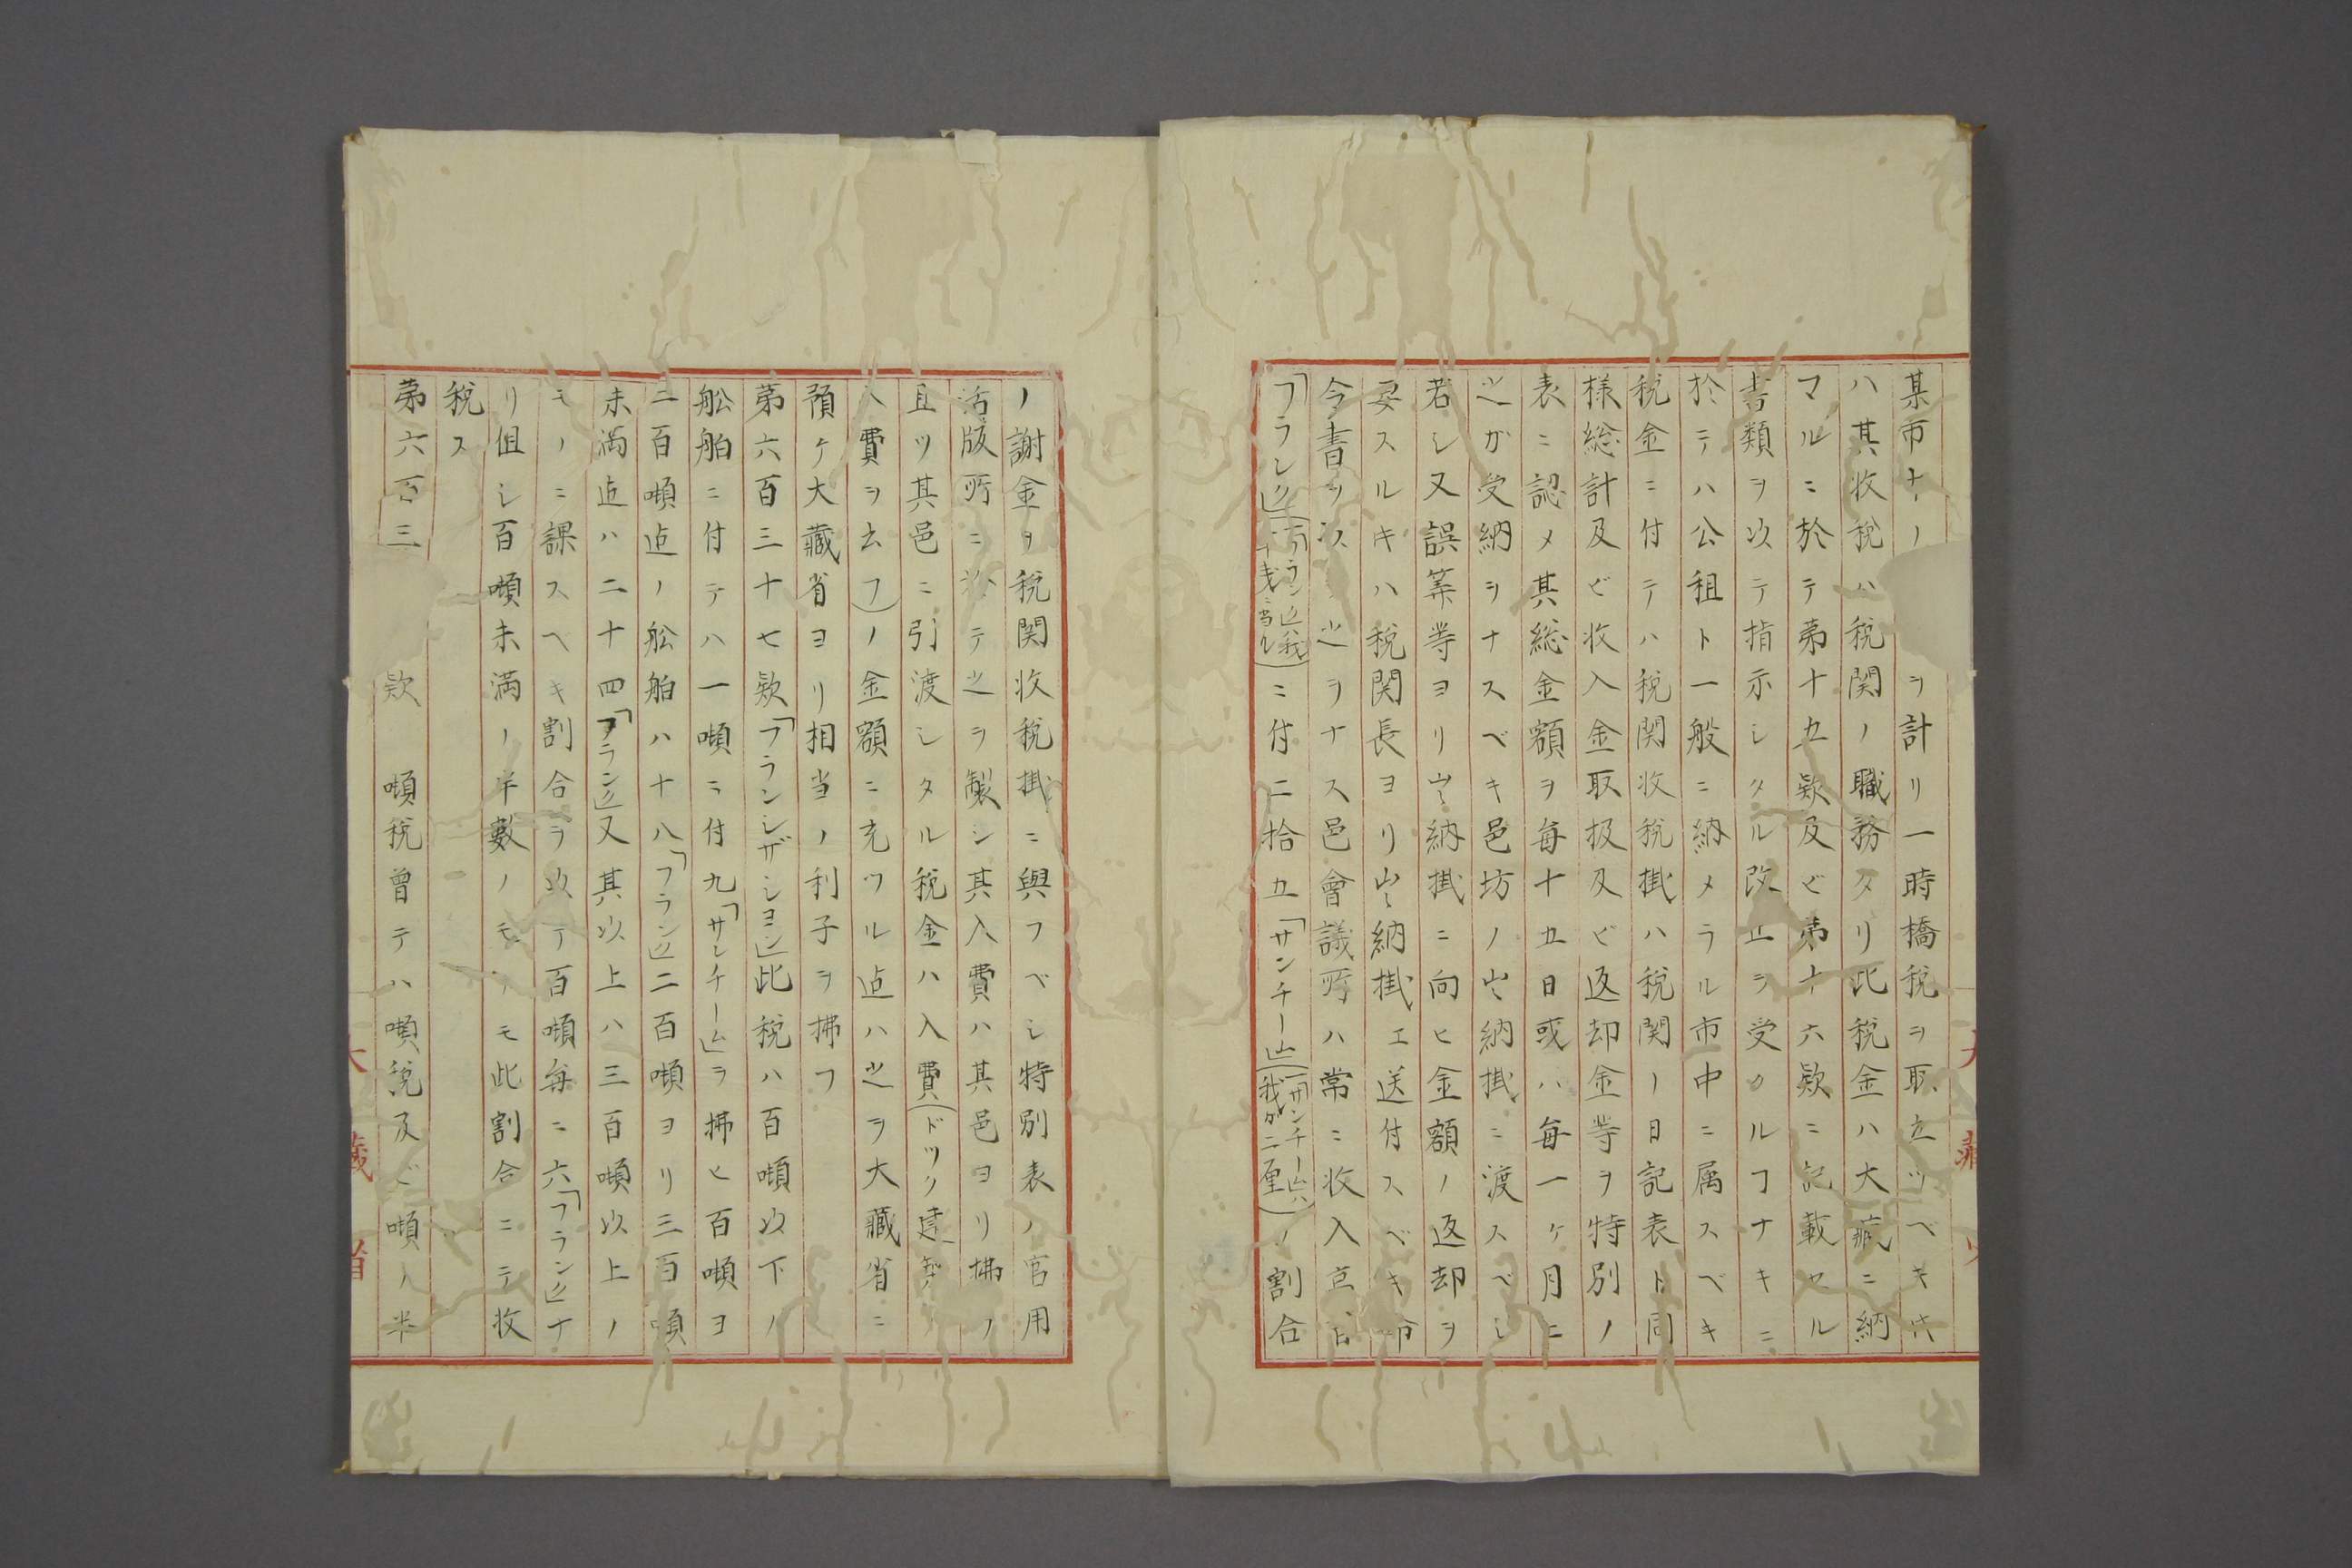 某市ナノ
ヲ計リ一時橋税ヲ取立ツベキ
ハ其收税ハ税関ノ職務タリ此税金ハ大藏ニ納
マルニ於テ第十五欵及ビ第十六欵ニ記載セル
書類ヲ以テ指示シタル改正ヲ受クルヿナキニ
於テハ公租ト一般ニ納メラル市中ニ属スベキ
税金ニ付テハ税関收税掛ハ税関ノ日記表ト同
様総計及ビ收入金取扱及ビ返却金等ヲ特別ノ
表ニ認メ其総金額ヲ毎十五日或ハ毎一ヶ月ニ
之ガ受納ヲナスベキ邑坊ノ出納掛ニ渡スベシ
若シ又誤筭等ヨリ出納掛ニ向ヒ金額ノ返却ヲ
要スルキハ税関長ヨリ出納掛エ送付スベキ命
令書ヲ以之ヲナス邑會議所ハ常ニ收入
「フランク」(一フランク我二十戔ニ当ル)ニ付二拾五「サンチーム」(一サンチームハ我ガ二厘)ノ割合
ノ謝金ヲ税関收税掛ニ與フベシ特別表ノ官用
活版所ニ於テ之ヲ製シ其入費ハ其邑ヨリ拂ノ
且ツ其邑ニ引渡シタル税金ハ入費
入費ヲ云フ)ノ金額ニ充ツル迠ハ之ヲ大藏省ニ
預ケ大藏省ヨリ相当ノ利子ヲ拂フ
第六百三十七欵「フランシザシヨン」此税ハ百噸以下ノ
舩舶ニ付テハ一噸ニ付九「サンチーム」ヲ拂ヒ百噸ヨ
ニ百噸迠ノ舩舶ハ十八「フランク」二百噸ヨリ三百噸
未満迠ハ二十四「フランク」又其以上ハ三百噸以上ノ
モノニ課スヘキ割合ヲ以テ百噸毎ニ六「フランク」ナ
リ但シ百噸未満ノ半數ノモノモ此割合ニテ收
税ス
第六百三
欵
噸税曾テハ噸税及ビ噸ノ半
大藏省